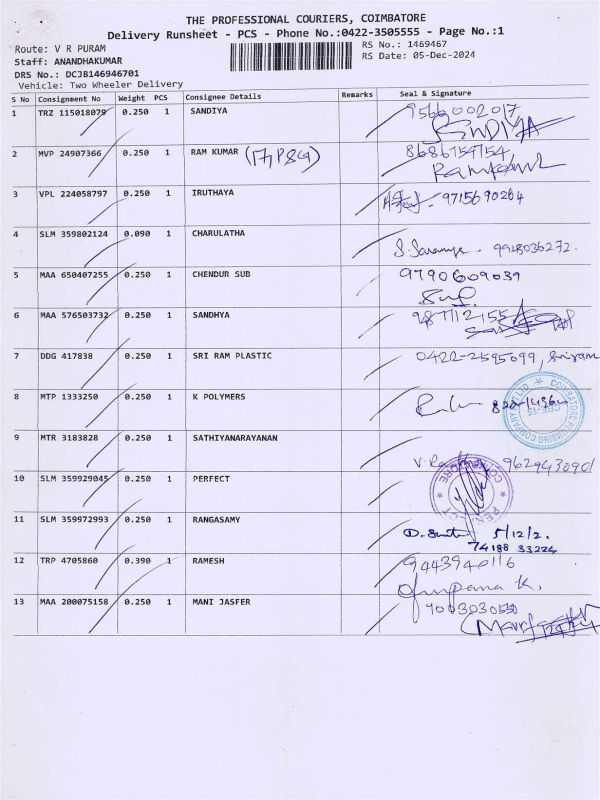 THE PROFESSIONAL COURIERS, COIMBATORE
Delivery Runsheet - PCS - Phone No.:0422-3505555 - Page No.:1
Route: V R PURAM
RS No.: 1469467
Staff: ANANDHAKUMAR
RS Date: 05-Dec-2024
DRS No.: DCJB146946701
Vehicle: Two Wheeler Delivery
S No Consignment No Weight PCS Consignee Details Remarks Seal & Signature
1 TRZ 115018079 0.250 1 SANDIYA 9566002017
SANDIYA
2 MVP 24907366 0.250 1 RAM KUMAR (17, PSG) 8686754754
Ramkumar
3 VPL 224058797 0.250 1 IRUTHAYA 9715690264
4 SLM 359802124 0.090 1 CHARULATHA S. Saranya - 9928036272
5 MAA 650407255 0.250 1 CHENDUR SUB 9790609039
6 MAA 576503732 0.250 1 SANDHYA
7 DDG 417838 0.250 1 SRI RAM PLASTIC 0422-2595099, Sriram
8 MTP 1333250 0.250 1 K POLYMERS
9 MTR 3183828 0.250 1 SATHIYANARAYANAN 9629430901
10 SLM 359929045 0.250 1 PERFECT
11 SLM 359972993 0.250 1 RANGASAMY 5/12/2.
74188 33224
12 TRP 4705860 0.390 1 RAMESH 9443940116
K.
13 MAA 200075158 0.250 1 MANI JASFER